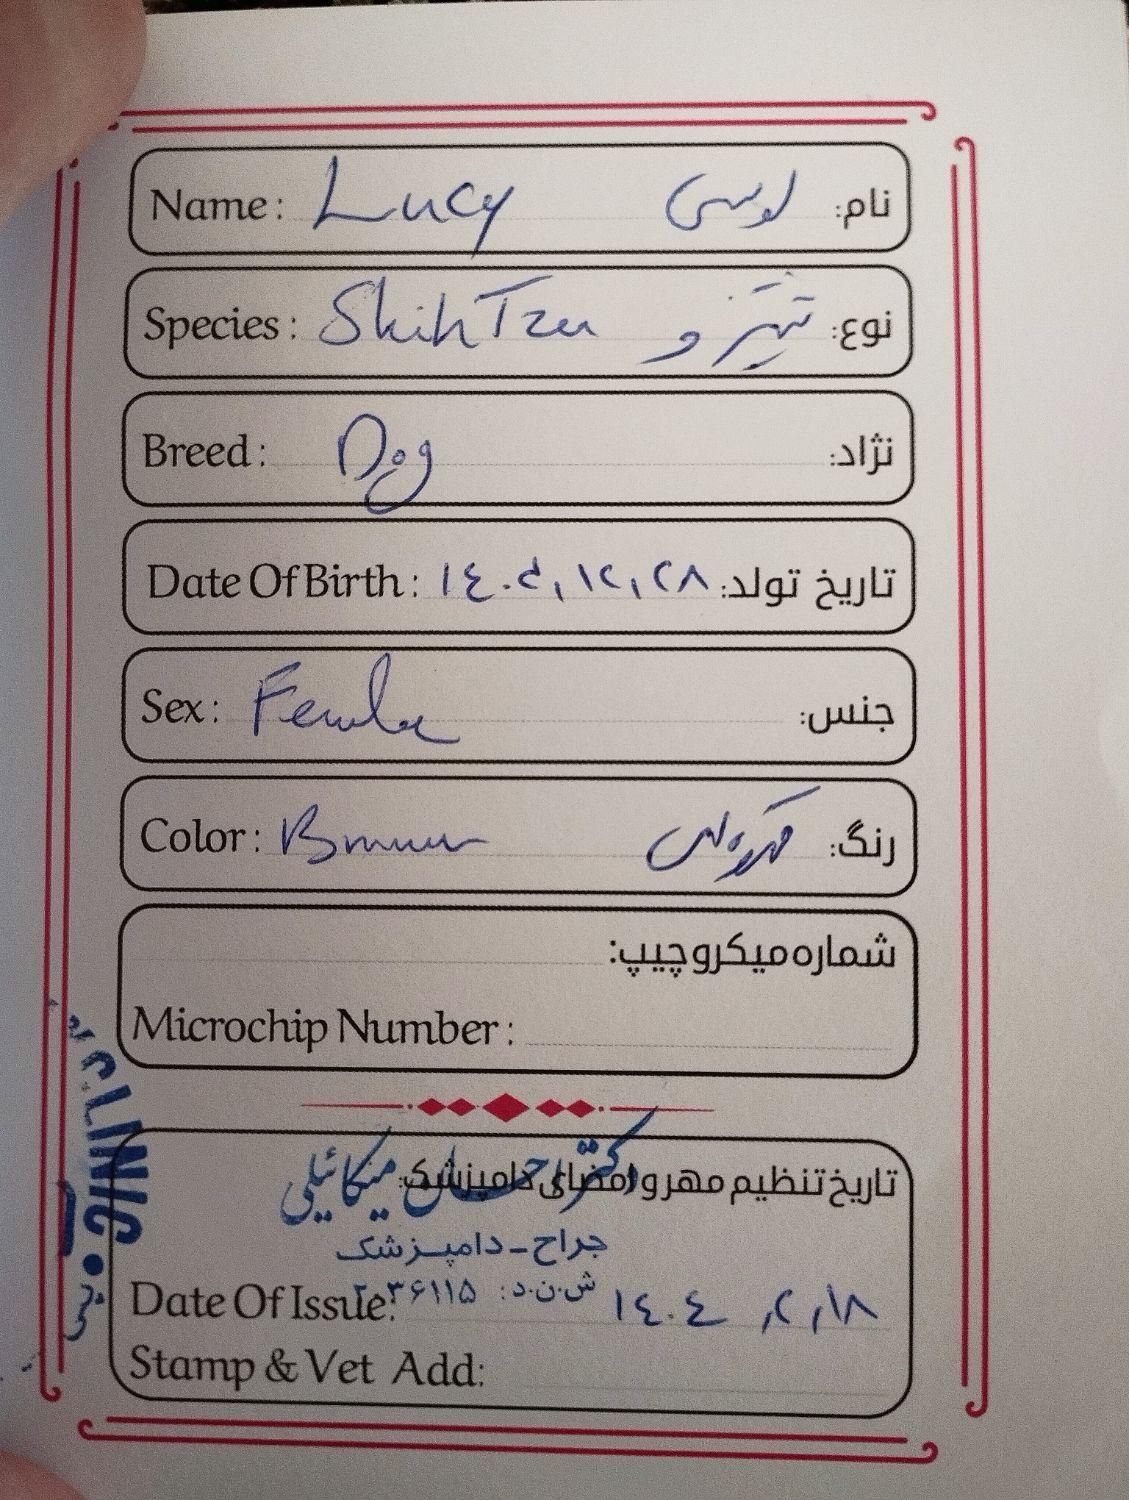 Name: Lucy لوسی نام:
Species: Shih Tzu شیتزو نوع:
Breed: Dog نژاد:
Date Of Birth: ۱۲,۲۸ تاریخ تولد:
Sex: Female جنس:
Color: Brown رنگ:
شماره میکروچیپ:
Microchip Number:
تاریخ تنظیم مهر و امضای دامپزشک:
دکتر احسان میکائیلی
جراح - دامپزشک
ش.ن.د:
Date Of Issue: ۱٤۰٤,۲,۱۸
Stamp & Vet Add:
CLINIC